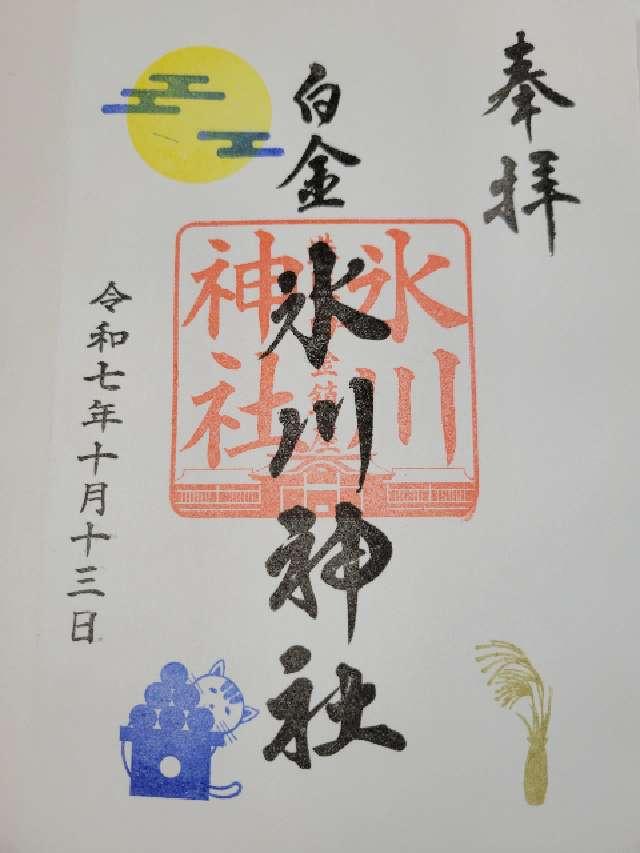 奉拝
白金
氷川神社
氷川
神社
令和七年十月十三日